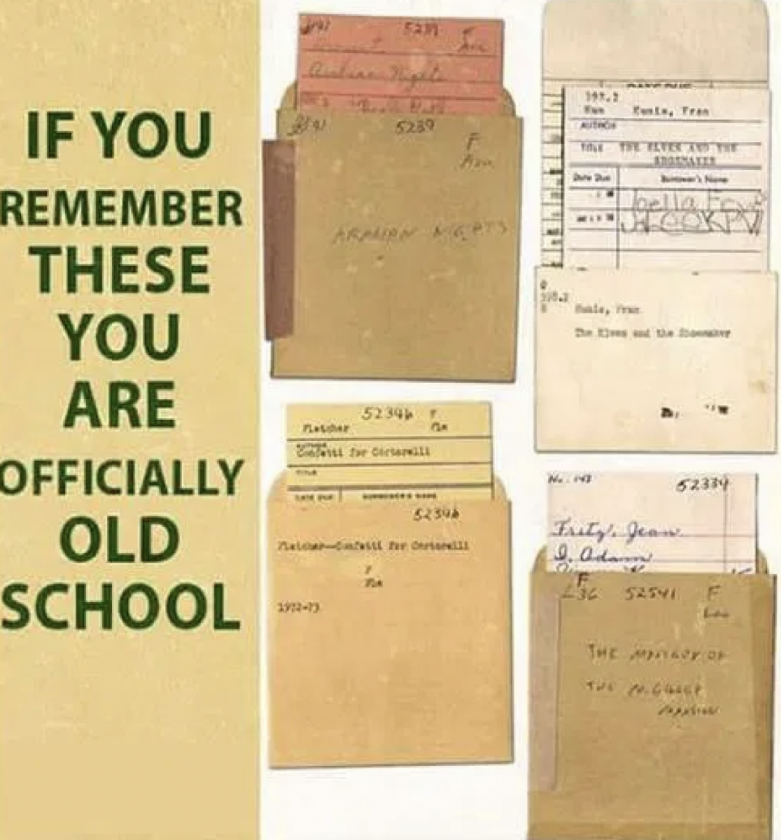 IF YOU
REMEMBER
THESE
YOU
ARE
OFFICIALLY
OLD
SCHOOL
5239 F
Arabian Nights
5239
F
ARABIAN NIGHTS
398.2
Kunis, Fran
AUTHOR
TITLE THE ELVES AND THE
SHOEMAKER
Date Due Borrower's Name
398.2
Kunis, Fran
The Elves and the Shoemaker
52346 F
Fletcher Fle
AUTHOR
Confetti for Cortorelli
TITLE
DATE DUE BORROWER'S NAME
52346
Fletcher--Confetti for Cortorelli
F
Fle
1972-73
No. 143 52334
Fritz, Jean
I, Adam
F
52541 F
THE OF
THE
MANSION